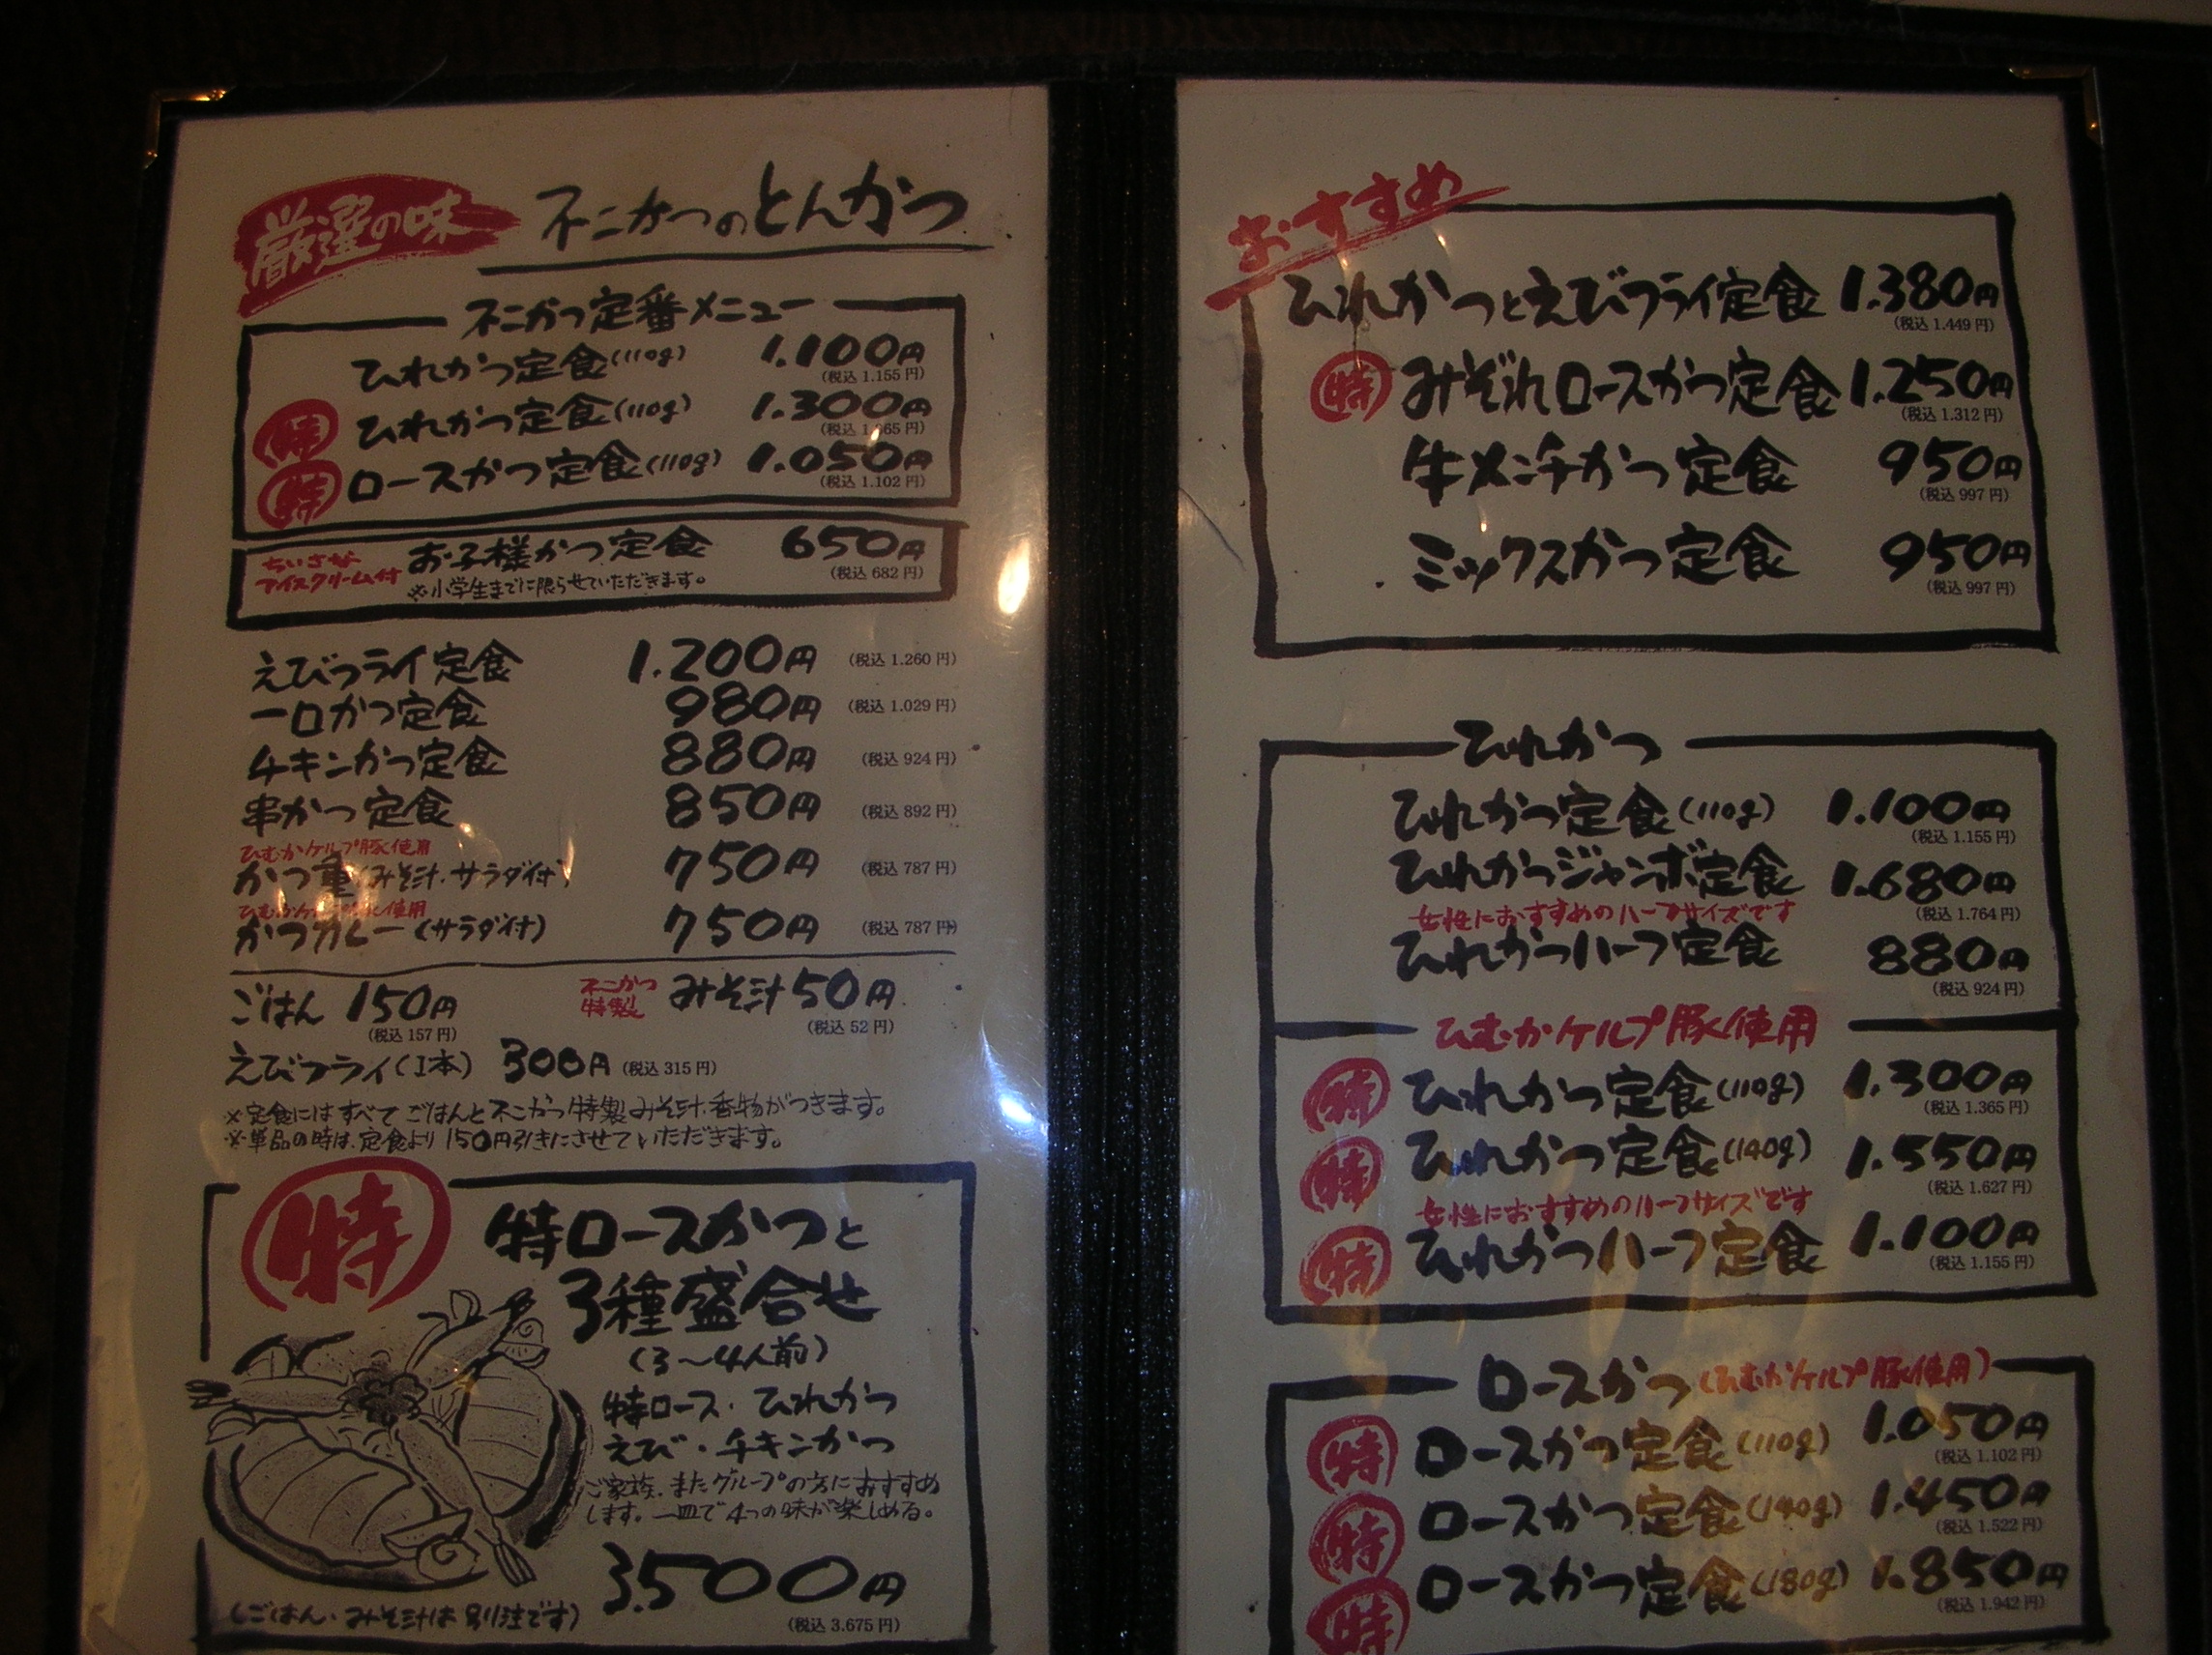 厳選の味 不二かつのとんかつ
不二かつ定番メニュー
ひれかつ定食(110g) 1.100円
(税込 1.155 円)
特 ひれかつ定食(110g) 1.300円
(税込 1.365 円)
特 ロースかつ定食(110g) 1.050円
(税込 1.102 円)
ちいさな
アイスクリーム付 お子様かつ定食 650円
(税込 682 円)
※小学生までに限らせていただきます。
えびフライ定食 1.200円 (税込 1.260 円)
一口かつ定食 980円 (税込 1.029 円)
チキンかつ定食 880円 (税込 924 円)
串かつ定食 850円 (税込 892 円)
ひむかケルプ豚使用
かつ重(みそ汁.サラダ付) 750円 (税込 787 円)
ひむかケルプ豚使用
かつカレー(サラダ付) 750円 (税込 787 円)
ごはん 150円 不二かつ特製 みそ汁 50円
(税込 157 円) (税込 52 円)
えびフライ(1本) 300円 (税込 315 円)
※定食にはすべてごはんと不二かつ特製みそ汁.香物がつきます。
※単品の時は.定食より150円引きにさせていただきます。
特 特ロースかつと
3種盛合せ
(3〜4人前)
特ロース・ひれかつ
えび・チキンかつ
ご家族.またグループの方におすすめ
します。一皿で4つの味が楽しめる。
3.500円
(税込 3.675 円)
(ごはん・みそ汁は別注です)
おすすめ
ひれかつとえびフライ定食 1.380円
(税込 1.449 円)
特 みぞれロースかつ定食 1.250円
(税込 1.312 円)
牛メンチかつ定食 950円
(税込 997 円)
ミックスかつ定食 950円
(税込 997 円)
ひれかつ
ひれかつ定食(110g) 1.100円
(税込 1.155 円)
ひれかつジャンボ定食 1.680円
(税込 1.764 円)
女性におすすめのハーフサイズです
ひれかつハーフ定食 880円
(税込 924 円)
ひむかケルプ豚使用
特 ひれかつ定食(110g) 1.300円
(税込 1.365 円)
特 ひれかつ定食(140g) 1.550円
(税込 1.627 円)
女性におすすめのハーフサイズです
特 ひれかつハーフ定食 1.100円
(税込 1.155 円)
ロースかつ(ひむかケルプ豚使用)
特 ロースかつ定食(110g) 1.050円
(税込 1.102 円)
特 ロースかつ定食(140g) 1.450円
(税込 1.522 円)
特 ロースかつ定食(180g) 1.850円
(税込 1.942 円)